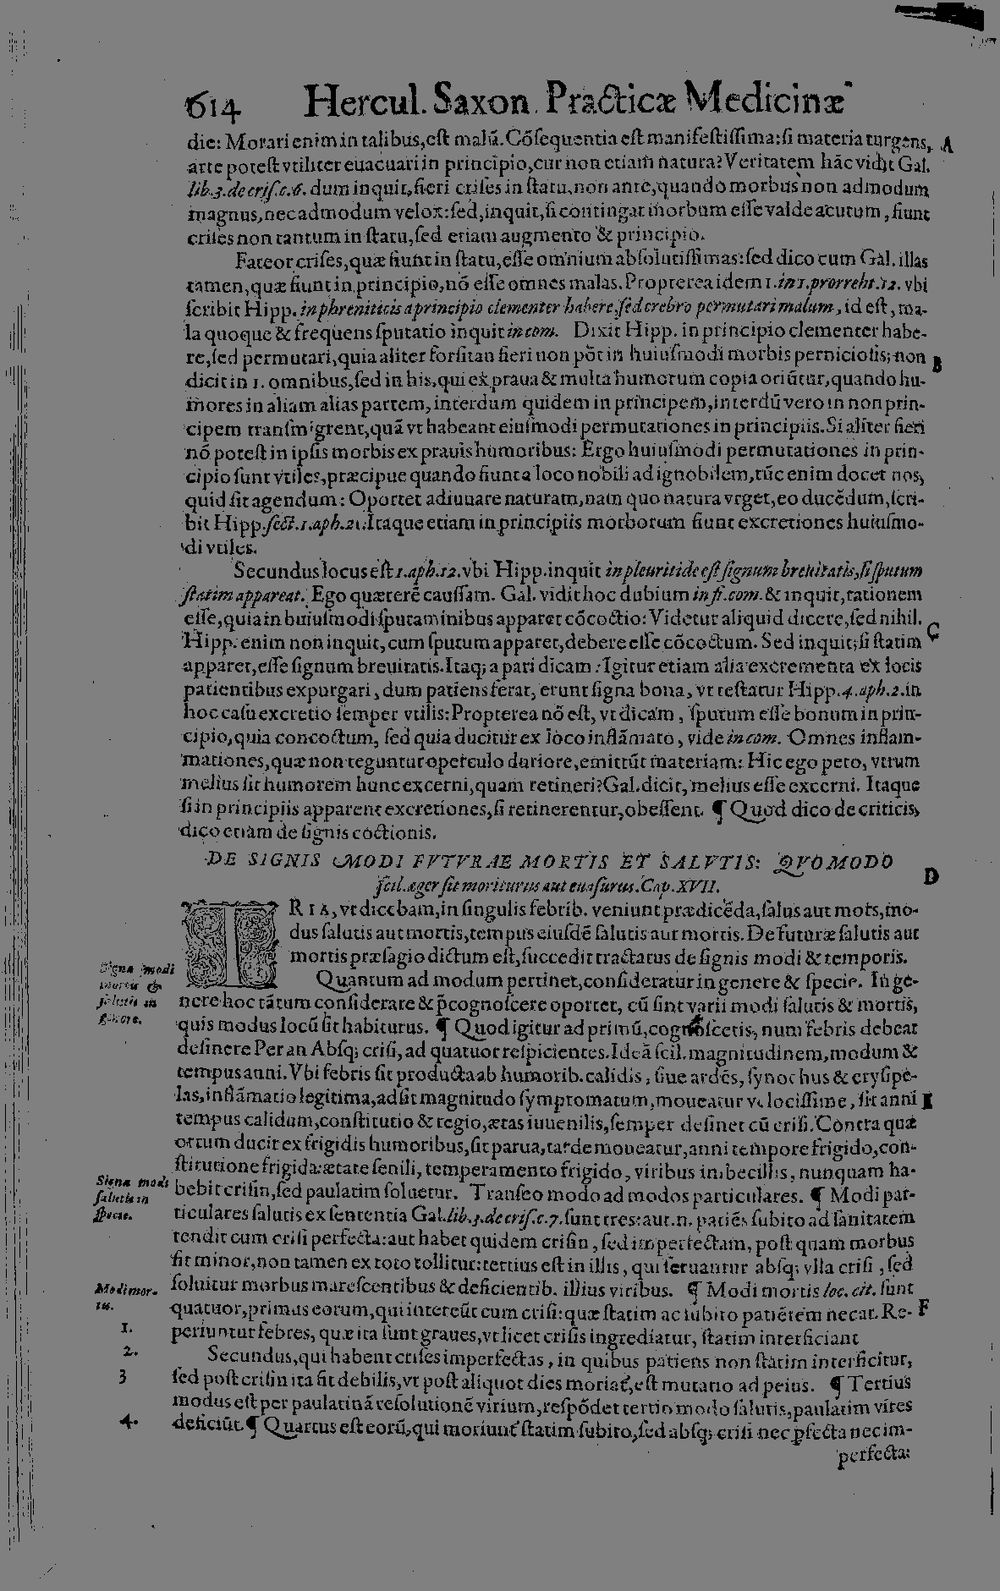 614 Hercul. Saxon. Practicæ Medicinæ
die: Morari enim in talibus, est malũ. Cõsequentia est manifestissima: si materia turgens, A
arte potest vtiliter euacuari in principio, cur non etiam natura? Veritatem hãc vidit Gal.
lib.3.de cris.c.6. dum inquit, fieri crises in statu, non ante, quando morbus non admodum
magnus, nec admodum velox: sed, inquit, si contingat morbum esse valde acutum, fiunt
crises non tantum in statu, sed etiam augmento & principio.
Fateor crises, quæ fiunt in statu, esse omnium absolutissimas: sed dico cum Gal. illas
tamen, quæ fiunt in principio, nõ esse omnes malas. Propterea idem 1. in 1. prorreht. 12. vbi
scribit Hipp. in phreniticis a principio clementer habere, sed crebro permutari malum, id est, ma-
la quoque & frequens sputatio inquit in com. Dixit Hipp. in principio clementer habe-
re, sed permutari, quia aliter forsitan fieri non põt in huiusmodi morbis perniciosis; non B
dicit in 1. omnibus, sed in his, qui ex praua & multa humorum copia oriũtur, quando hu-
mores in aliam alias partem, interdum quidem in principem, interdũ vero in non prin-
cipem transmigrent, quã vt habeant eiusmodi permutationes in principiis. Si aliter fieri
nõ potest in ipsis morbis ex prauis humoribus: Ergo huiusmodi permutationes in prin-
cipio sunt vtiles, præcipue quando fiunt a loco nobili ad ignobilem, tũc enim docet nos,
quid sit agendum: Oportet adiuuare naturam, nam quo natura vrget, eo ducẽdum, scri-
bit Hipp. sect.1.aph.21. Itaque etiam in principiis morborum fiunt excretiones huiusmo-
di vtiles.
Secundus locus est 1.aph.12. vbi Hipp. inquit in pleuritide est signum breuitatis, si sputum
statim appareat. Ego quærerẽ caussam. Gal. vidit hoc dubium in fi. com. & inquit, rationem
esse, quia in huiusmodi sputaminibus apparet cõcoctio: Videtur aliquid dicere, sed nihil.
Hipp. enim non inquit, cum sputum apparet, debere esse cõcoctum. Sed inquit; si statim C
apparet, esse signum breuitatis. Itaq; a pari dicam: Igitur etiam alia excrementa ex locis
patientibus expurgari, dum patiens ferat, erunt signa bona, vt testatur Hipp. 4. aph. 2. in
hoc casu excretio semper vtilis: Propterea nõ est, vt dicam, sputum esse bonum in prin-
cipio, quia concoctum, sed quia ducitur ex loco inflãmato, vide in com. Omnes inflam-
mationes, quæ non teguntur operculo duriore, emittũt materiam: Hic ego peto, vtrum
melius sit humorem hunc excerni, quam retineri? Gal. dicit, melius esse excerni. Itaque
si in principiis apparent excretiones, si retinerentur, obessent. ¶ Quod dico de criticis,
dico etiam de signis coctionis.
DE SIGNIS MODI FVTVRAE MORTIS ET SALVTIS: QVOMODO
scil. æger sit moriturus aut euasurus. Cap. XVII. D
TRIA, vt dicebam, in singulis febrib. veniunt prædicẽda, salus aut mors, mo-
dus salutis aut mortis, tempus eiusdẽ salutis aut mortis. De futuræ salutis aut
mortis præsagio dictum est, succedit tractatus de signis modi & temporis.
Signa modi
mortis &
salutis in
genere.
Quantum ad modum pertinet, consideratur in genere & specie. In ge-
nere hoc tãtum considerare & p̃cognoscere oportet, cũ sint varii modi salutis & mortis,
quis modus locũ sit habiturus. ¶ Quod igitur ad primũ, cognoscetis, num febris debeat
desinere Per an Absq; crisi, ad quatuor respicientes. Ideã scil. magnitudinem, modum &
tempus anni. Vbi febris sit producta ab humorib. calidis, siue ardẽs, synochus & erysipe-
las, inflãmatio legitima, adsit magnitudo symptomatum, moueatur velocissime, sit anni E
tempus calidum, constitutio & regio, ætas iuuenilis, semper desinet cũ crisi. Contra quæ
ortum ducit ex frigidis humoribus, sit parua, tarde moueatur, anni tempore frigido, con-
stitutione frigida: ætate senili, temperamento frigido, viribus imbecillis, nunquam ha-
bebit crisin, sed paulatim soluetur. Transeo modo ad modos particulares. ¶ Modi par-
Signa modi
salutis in
specie.
ticulares salutis ex sententia Gal. lib.3.de cris.c.7. sunt tres: aut. n. patiẽs subito ad sanitatem
tendit cum crisi perfecta: aut habet quidem crisin, sed imperfectam, post quam morbus
fit minor, non tamen ex toto tollitur: tertius est in illis, qui seruantur absq; vlla crisi, sed
soluitur morbus marescentibus & deficientib. illius viribus. ¶ Modi mortis loc. cit. sunt
Modi mor-
tis.
quatuor, primus eorum, qui intereũt cum crisi: quæ statim ac iubito patiẽtem necat. Re- F
1.
periuntur febres, quæ ita sunt graues, vt licet crisis ingrediatur, statim interficiant
2.
Secundus, qui habent crises imperfectas, in quibus patiens non statim interficitur,
3
sed post crisin ita fit debilis, vt post aliquot dies moriat̃, est mutatio ad peius. ¶ Tertius
modus est per paulatinã resolutionẽ virium, respõdet tertio modo salutis, paulatim vires
4.
deficiũt. ¶ Quartus est eorũ, qui moriunt̃ statim subito, sed absq; crisi nec p̱fecta nec im-
perfecta: